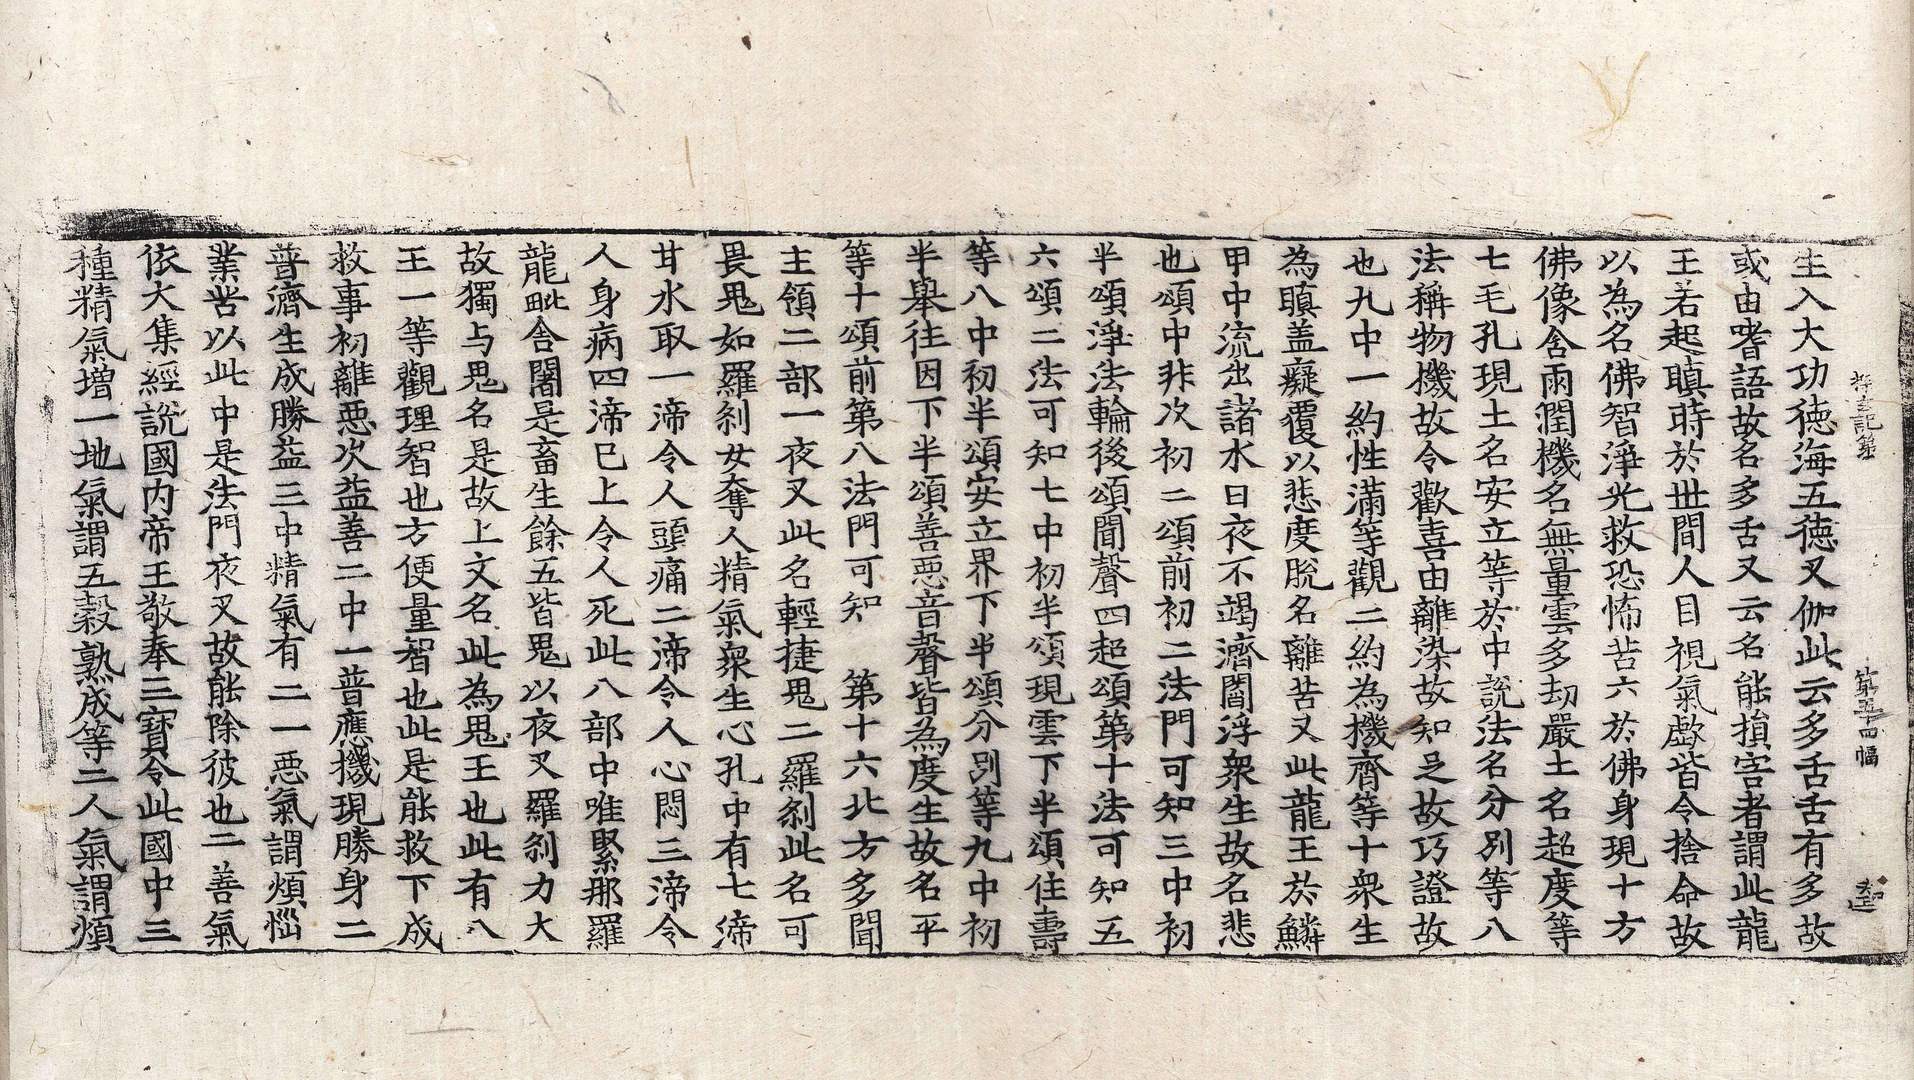 探玄記第
第五十四幅
生入大功徳海五徳叉伽此云多舌舌有多故
或由嗜語故名多舌又云名能損害者謂此龍
王若起瞋時於世間人目視氣歔皆令捨命故
以為名佛智淨光救恐怖苦六於佛身現十方
佛像含雨潤機名無量雲多劫嚴土名超度等
七毛孔現土名安立等於中說法名分別等八
法稱物機故令歡喜由離染故知足故巧證故
也九中一約性滿等觀二約為機齊等十衆生
為瞋盖癡覆以悲度脫名離苦又此龍王於鱗
甲中流出諸水日夜不竭濟閻浮衆生故名悲
也頌中非次初二頌前初二法門可知三中初
半頌淨法輪後頌聞聲四超頌第十法可知五
六頌二法可知七中初半頌現雲下半頌住壽
等八中初半頌安立界下半頌分別等九中初
半舉往因下半頌善惡音聲皆為度生故名平
等十頌前第八法門可知　第十六北方多聞
主領二部一夜叉此名輕捷鬼二羅剎此名可
畏鬼如羅剎女奪人精氣衆生心孔中有七渧
甘水取一渧令人頭痛二渧令人心悶三渧令
人身病四渧已上令人死此八部中唯緊那羅
龍毗舍闍是畜生餘五皆鬼以夜叉羅剎力大
故獨与鬼名是故上文名此為鬼王也此有八
王一等觀理智也方便量智也此是能救下成
救事初離惡次益善二中一普應機現勝身二
普濟生成勝益三中精氣有二一惡氣謂煩惱
業苦以此中是法門夜叉故能除彼也二善氣
依大集經說國内帝王敬奉三寶令此國中三
種精氣增一地氣謂五穀熟成等二人氣謂煩